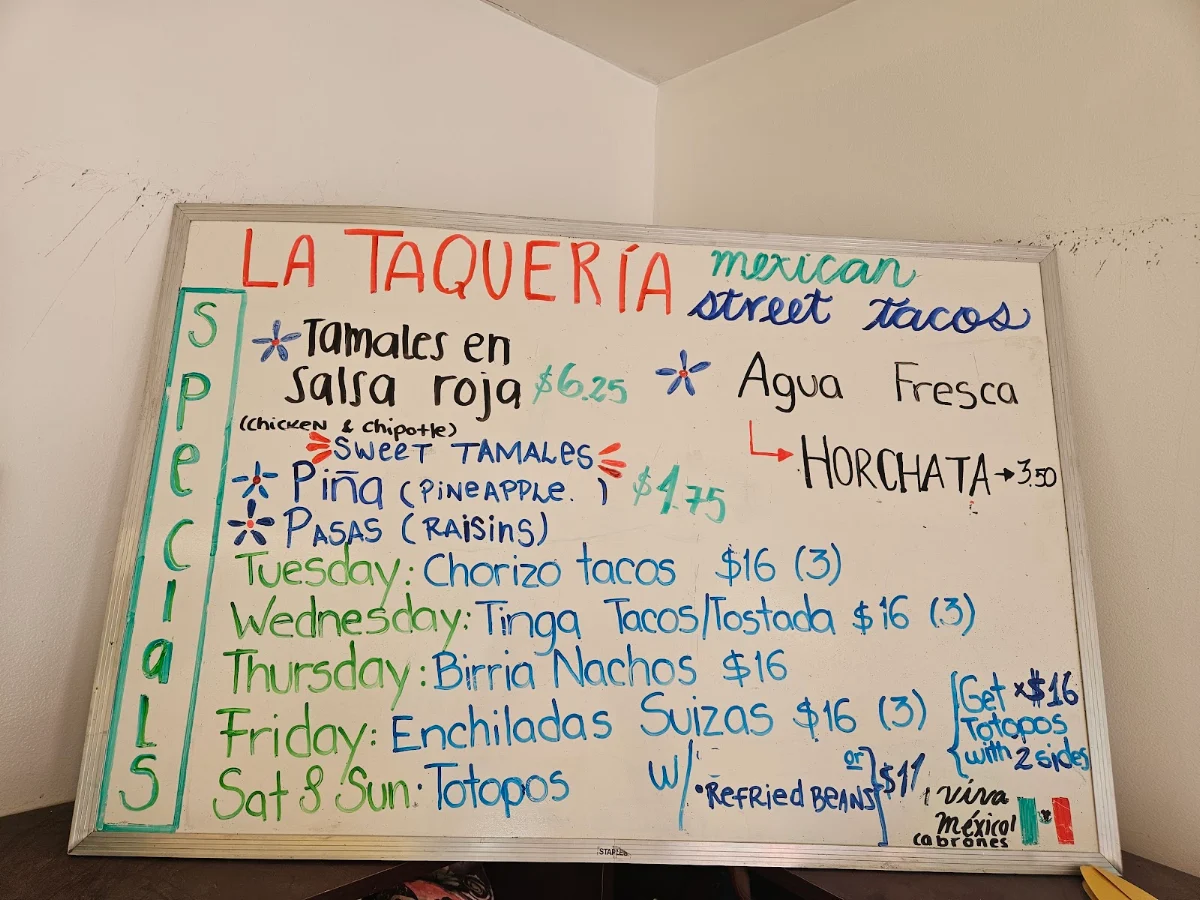 LA TAQUERÍA mexican
street tacos
Specials
Tamales en
salsa roja $6.25
(chicken & chipotle)
Sweet TAMALES
Piña (PINEAPPLE. ) $4.75
PASAS (RAISINS)
Agua Fresca
HORCHATA → 3.50
Tuesday: Chorizo tacos $16 (3)
Wednesday: Tinga Tacos/Tostada $16 (3)
Thursday: Birria Nachos $16
Friday: Enchiladas Suizas $16 (3)
Sat & Sun: Totopos w/ •Refried BEANS or $11
Get x$16
Totopos
with 2 sides
¡Viva
México!
cabrones
STAPLES